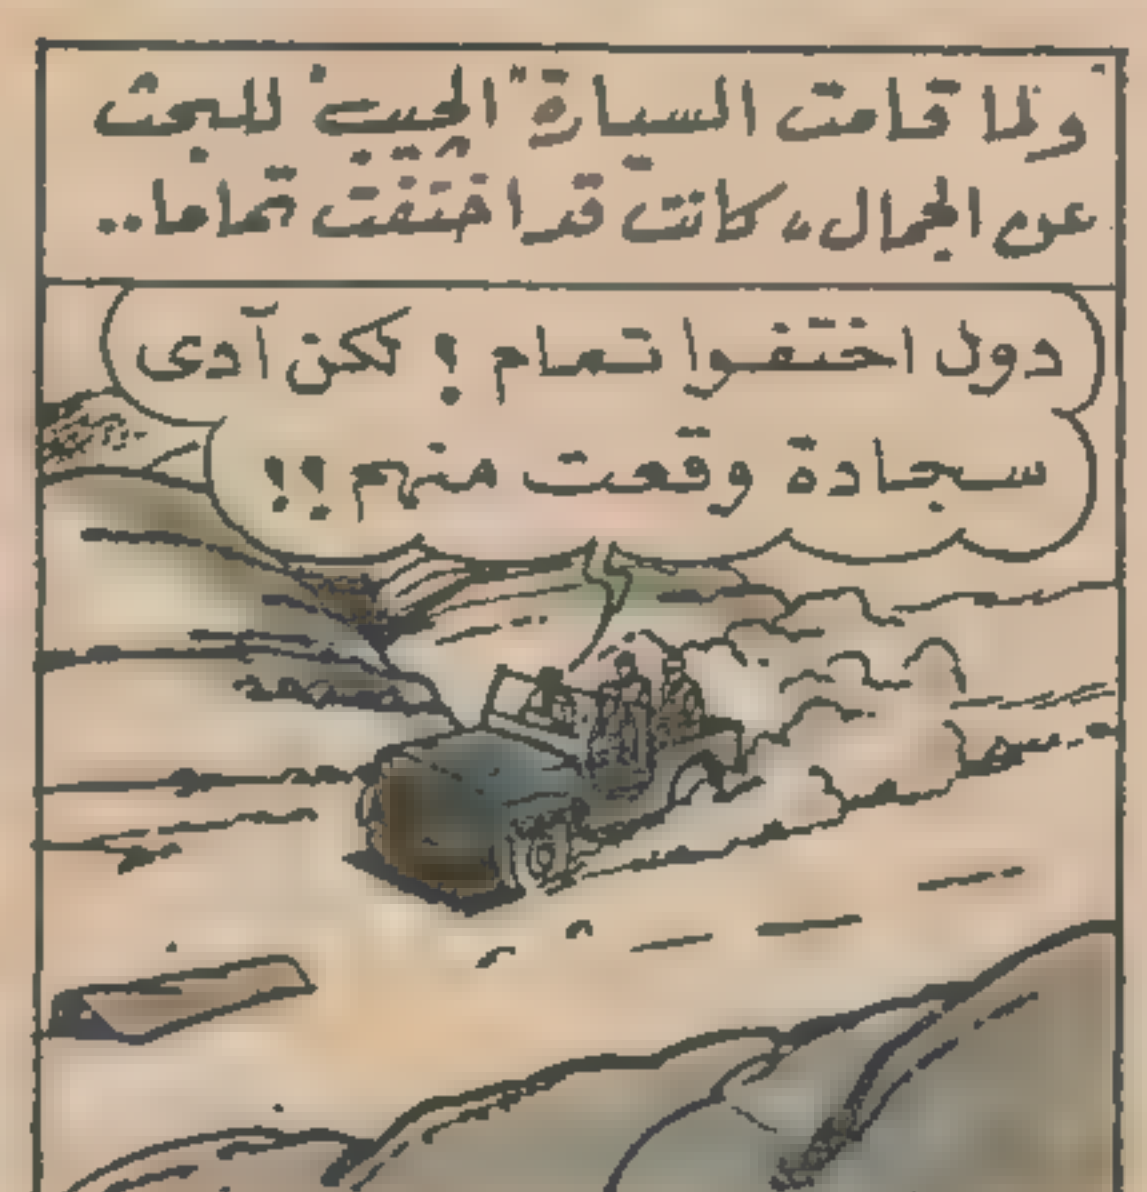 ولما قامت السيارة "الجيب" للبحث
عن الجمال، كانت قد اختفت تماما..
دول اختفوا تمام! لكن آدى
سجادة وقعت منهم!!